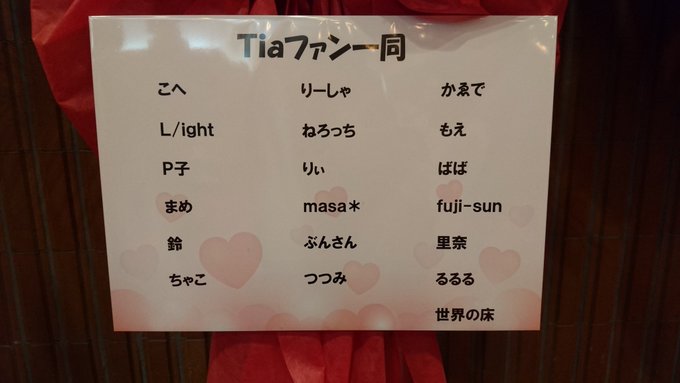 Tiaファン一同
こへ りーしゃ かゑで
L/ight ねろっち もえ
P子 りぃ ばば
まめ masa＊ fuji-sun
鈴 ぶんさん 里奈
ちゃこ つつみ るるる
世界の床